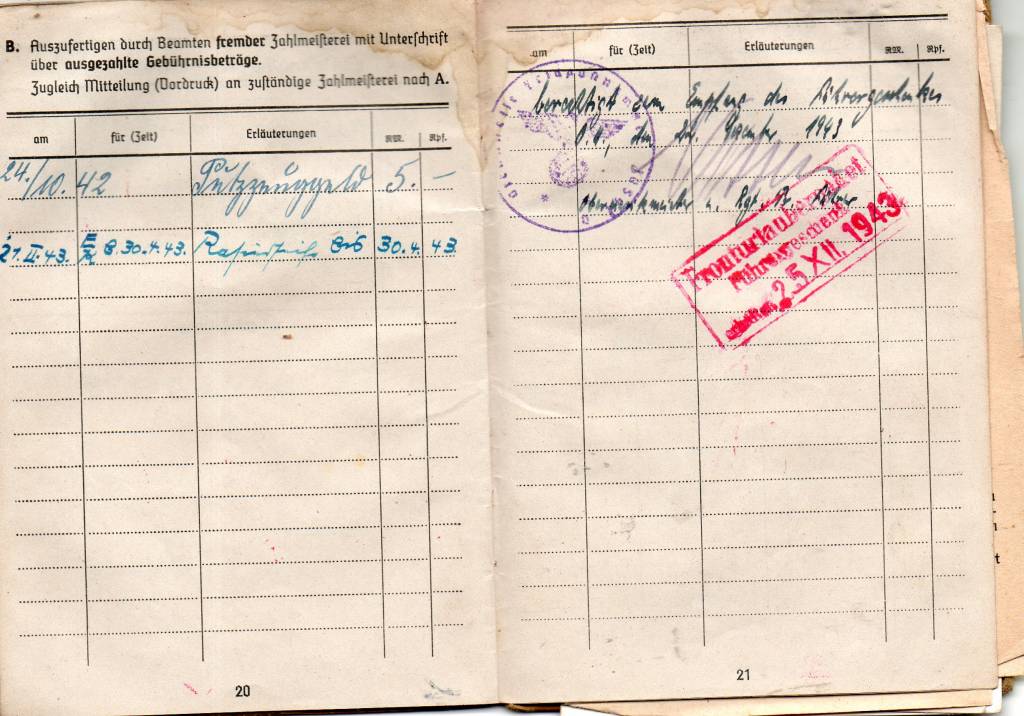 B. Auszufertigen durch Beamten fremder Zahlmeisterei mit Unterschrift
über ausgezahlte Gebührnisbeträge.
Zugleich Mitteilung (Vordruck) an zuständige Zahlmeisterei nach A.
am für (Zeit) Erläuterungen RM. Rpf.
24./10. 42 Putzzeuggeld 5. –
21. II. 43. 30.4.43. bis 30.4. 43.
20
am für (Zeit) Erläuterungen RM. Rpf.
berechtigt zum Empfang des Führergeschenkes
O.U., den 22. Dezember 1943
Oberwachtmeister u. Führer
Fronturlauber
Führergeschenk
erhalten 25. XII. 1943
21